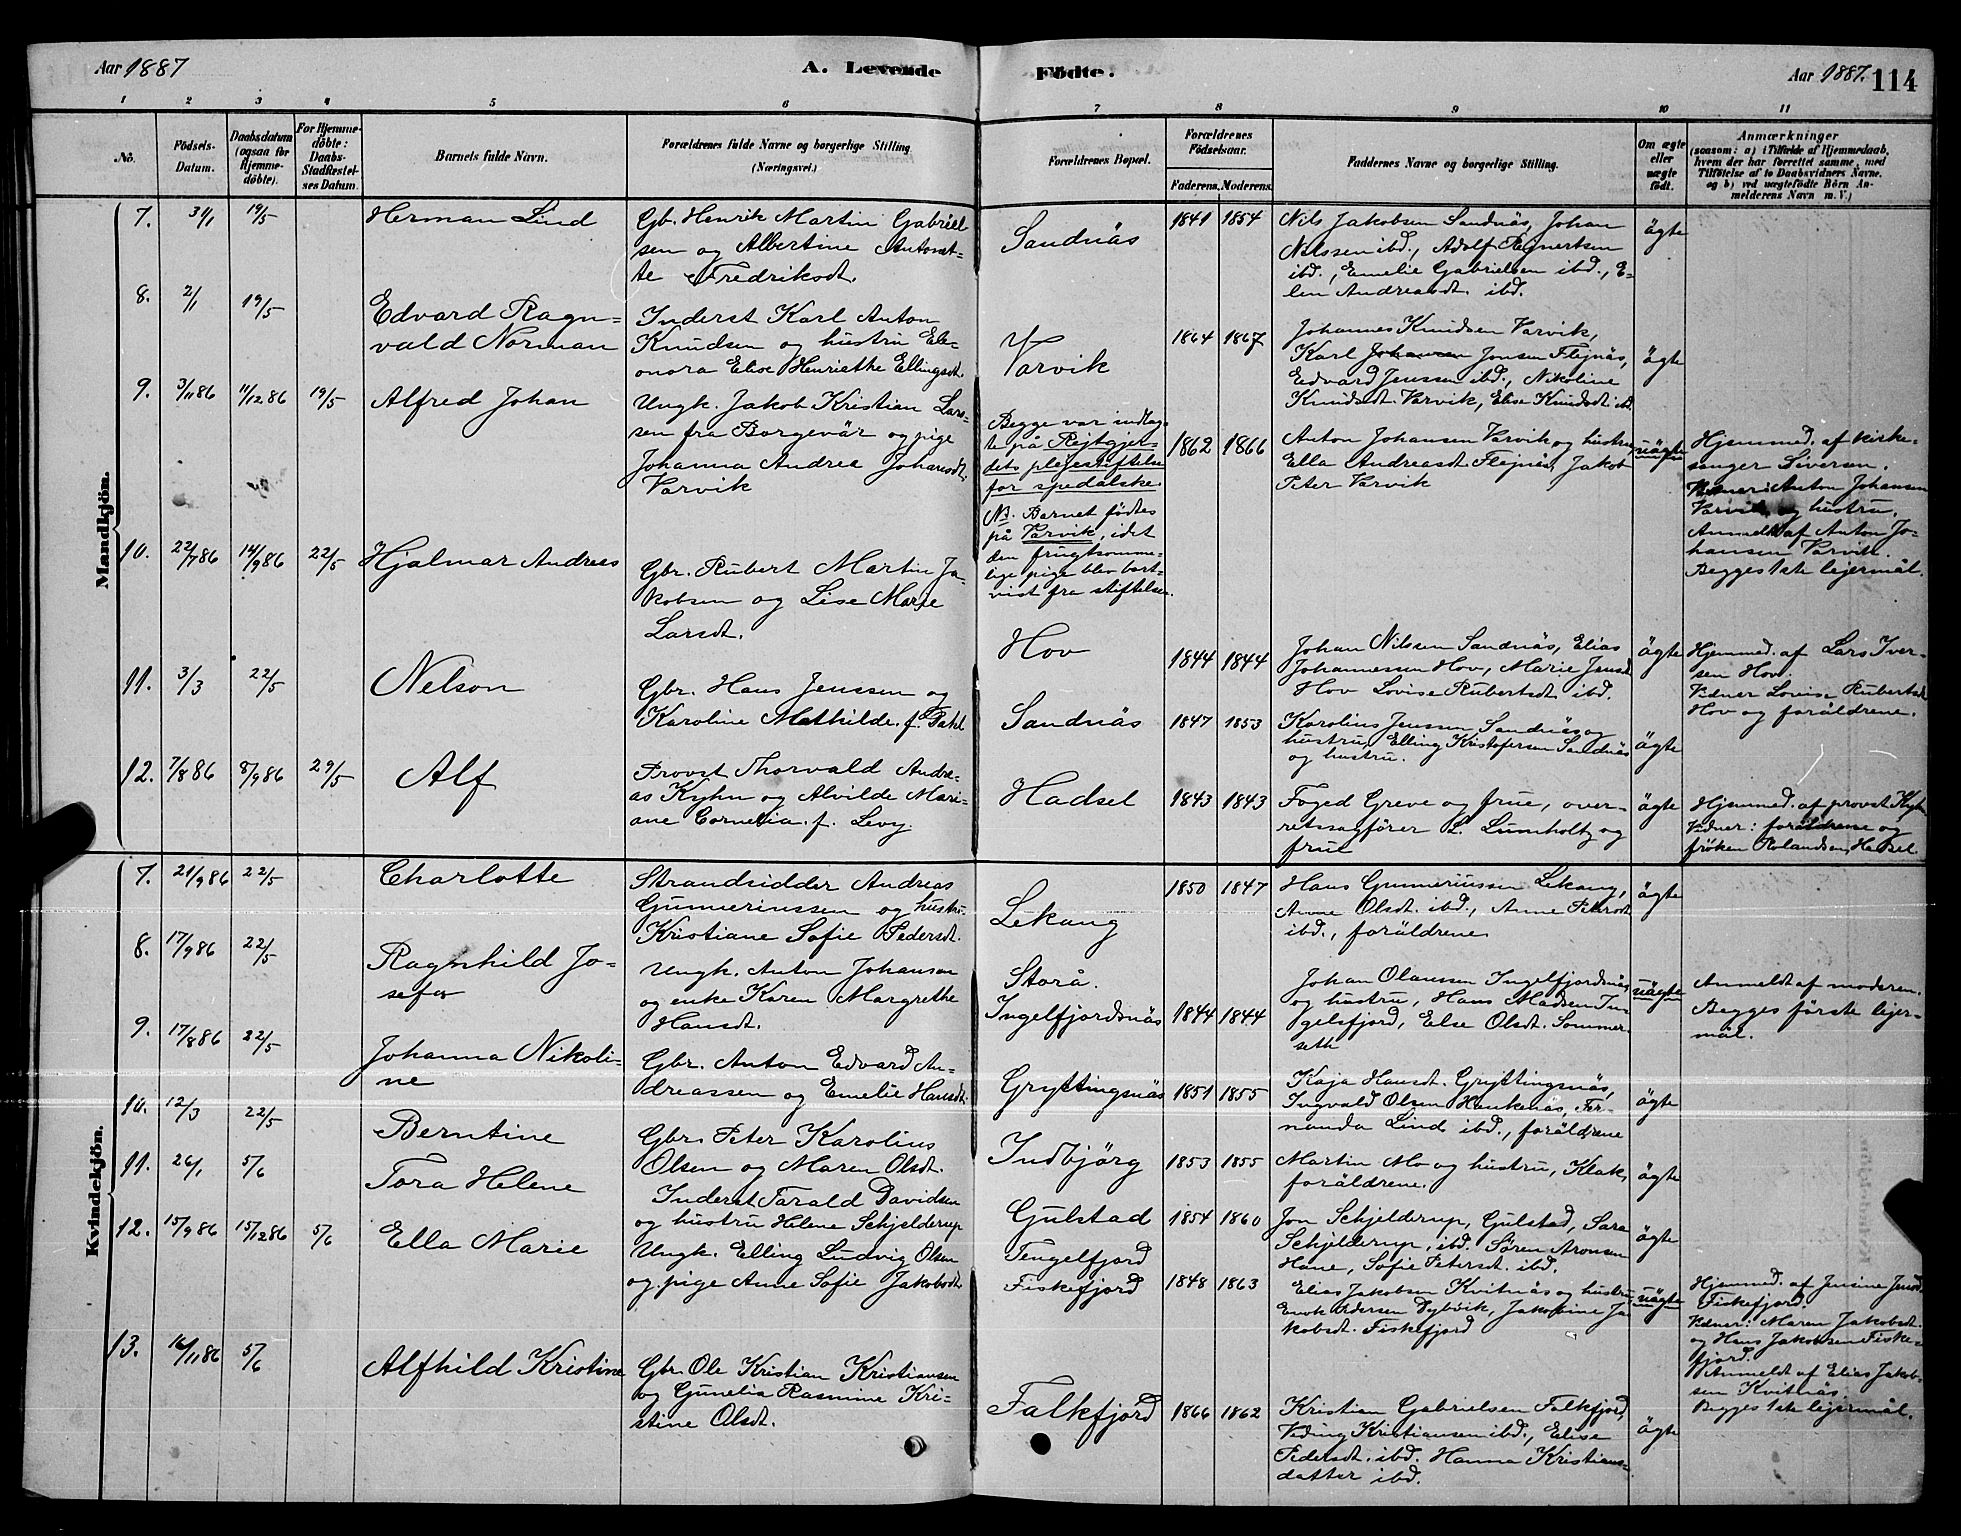 Aar 1887
A. Levende Födte.
Aar 1887.
114
1 2 3 4 5 6 7 8 9 10 11
No.
Födsels-Datum.
Daabsdatum (ogsaa for Hjemme-döbte).
For Hjemme-döbte: Daabs-Stadfæstel-ses Datum.
Barnets fulde Navn.
Forældrenes fulde Navne og borgerlige Stilling (Næringsvei.)
Forældrenes Bopæl.
Forældrenes Födselsaar.
Faderens. Moderens.
Faddernes Navne og borgerlige Stilling.
Om ægte eller uægte födt.
Anmærkninger
(saasom: a) i Tilfælde af Hjemmedaab,
hvem der har forrettet samme, med
Tilföielse af to Daabsvidners Navne.
og b) ved uægtefödte Börn An-
melderens Navn m. V.)
Mandkjön.
7. 31/1 19/5 Herman Lind
Gb. Henrik Martin Gabriel-
sen og Albertine Antonet-
te Fredriksdt.
Sandnäs
1841 1854
Nils Jakobsen Sandnäs, Johan
Nilssen ibd., Adolf Regnertsen
ibd., Emelie Gabrielsen ibd., E-
len Andreasdt. ibd.
ägte
8. 2/1 19/5 Edvard Ragn-
vald Norman
Inderst Karl Anton
Knudsen og hustru Ele-
onora Elise Henriethe Ellingsdt.
Varvik
1864 1867
Johannes Knudsen Varvik,
Karl Johansen Jonsen Flejnäs,
Edvard Jenssen ibd., Nikoline
Knudsdt. Varvik, Elise Knudsdt. ibd.
ägte
9. 3/11 86 11/12 86 19/5 Alfred Johan
Ungk. Jakob Kristian Lars-
sen fra Borgevär og pige
Johanna Andrea Johansdt.
Varvik
Begge var indlag-
te på Rejtgjer-
dets plejestiftelse
for spedalske.
NB. Barnet födtes
på Varvik, idet
den frugtsomme-
lige pige blev bort-
vist fra stiftelsen.
1862 1866
Anton Johansen Varvik og hustru
Ella Andreasdt. Flejnäs, Jakob
Peter Varvik
uägte
Hjemmed. af kirke-
sanger Siversen.
Vidner: Anton Johansen
Varvik og hustru.
Anmeldt af Anton Jo-
hansen Varvik.
Begges 1ste lejermål.
10. 22/7 86 14/9 86 22/5 Hjalmar Andreas
Gbr. Rubert Martin Ja-
kobsen og Lise Marie
Larsdt.
Hov
1844 1844
Johan Nilsen Sandnäs, Elias
Johannessen Hov, Marie Jensdt
Hov Lovise Rubertsdt. ibd.
ägte
Hjemmed. af Lars Iver-
sen Hov.
Vidner Lovise Rubertsdt
Hov og foräldrene.
11. 3/3 22/5 Nelson
Gbr. Hans Jenssen og
Karoline Mathilde f. Dahl
Sandnäs
1847 1853
Karolius Jenssen Sandnäs og
hustru, Elling Kristofersen Sandnäs
og hustru.
ägte
12. 7/8 86 8/9 86 29/5 Alf
Provst Thorvald Andre-
as Kyhn og Alvilde Mari-
ane Cornelia f. Levy
Hadsel
1843 1843
Foged Greve og frue, over-
retssagförer L. Lumholtz og
frue
ägte
Hjemmed. af provst Kyhn
Vidner: foräldrene og
fröken Rolandsen, Hadsel
Kvindekjön.
7. 21/9 86 22/5 Charlotte
Strandsidder Andreas
Gunneriussen og hustru
Kristiane Sofie Pedersdt.
Lekang
1850 1847
Hans Gunneriussen Lekang,
Anne Olsdt. ibd., Anne Petersdt
ibd., foräldrene
ägte
8. 17/9 86 22/5 Ragnhild Jo-
sefa
Ungk. Anton Johansen
og enke Karen Margrethe
Hansdt.
Storå.
Ingelfjordsnäs
1844 1844
Johan Olaussen Ingelfjordsnäs
og hustru, Hans Madsen In-
gelsfjord, Else Olsdt. Sommer-
seth
uägte
Anmeldt af moderen.
Begges förste lejer-
mål.
9. 17/8 86 22/5 Johanna Nikoli-
ne
Gbr. Anton Edvard An-
dreassen og Emelie Hansdt.
Gryttingsnäs
1851 1855
Kaja Hansdt. Gryttingsnäs,
Ingvald Olsen Hankenäs, Fer-
nanda Lind ibd., foräldrene
ägte
10. 12/3 22/5 Berntine
Gbr. Peter Karolius
Olsen og Maren Olsdt.
Indbjörg
1853 1855
Martin Mo og hustru, Klak,
foräldrene.
ägte
11. 26/1 5/6 Tora Helene
Inderst Tarald Davidsen
og hustru Helene Schjelderup
Gulstad
1854 1860
Jon Schjelderup, Gulstad, Sara
Schjelderup, ibd. Sören Aronsen
Hane, Sofie Petersdt. ibd.
ägte
12. 15/9 86 15/12 86 5/6 Ella Marie
Ungk. Elling Ludvig Olsen
og pige Anne Sofie Jakobsdt
Tengelfjord
Fiskefjord
1848 1863
Elias Jakobsen Kvitnäs og hustru,
Enok Pedersen Dybvik, Jakobine Ja-
kobsdt. Fiskefjord
uägte
Hjemmed. af Jensine Jensdt
Fiskefjord.
Vidner: Maren Jakobsdt.
og Hans Jakobsen Fiske-
fjord.
Anmeldt af Elias Jakob-
sen Kvitnäs.
Begges 1ste lejermål.
13. 16/11 86 5/6 Alfhild Kristine
Gbr. Ole Kristian Kristiansen
og Gunelia Rasmine Kri-
stine Olsdt.
Falkfjord
1866 1862
Kristian Gabrielsen Falkfjord,
Viding Kristiansen ibd., Elise
Pedersdt. ibd. Hanna Kristians-
datter ibd.
ägte